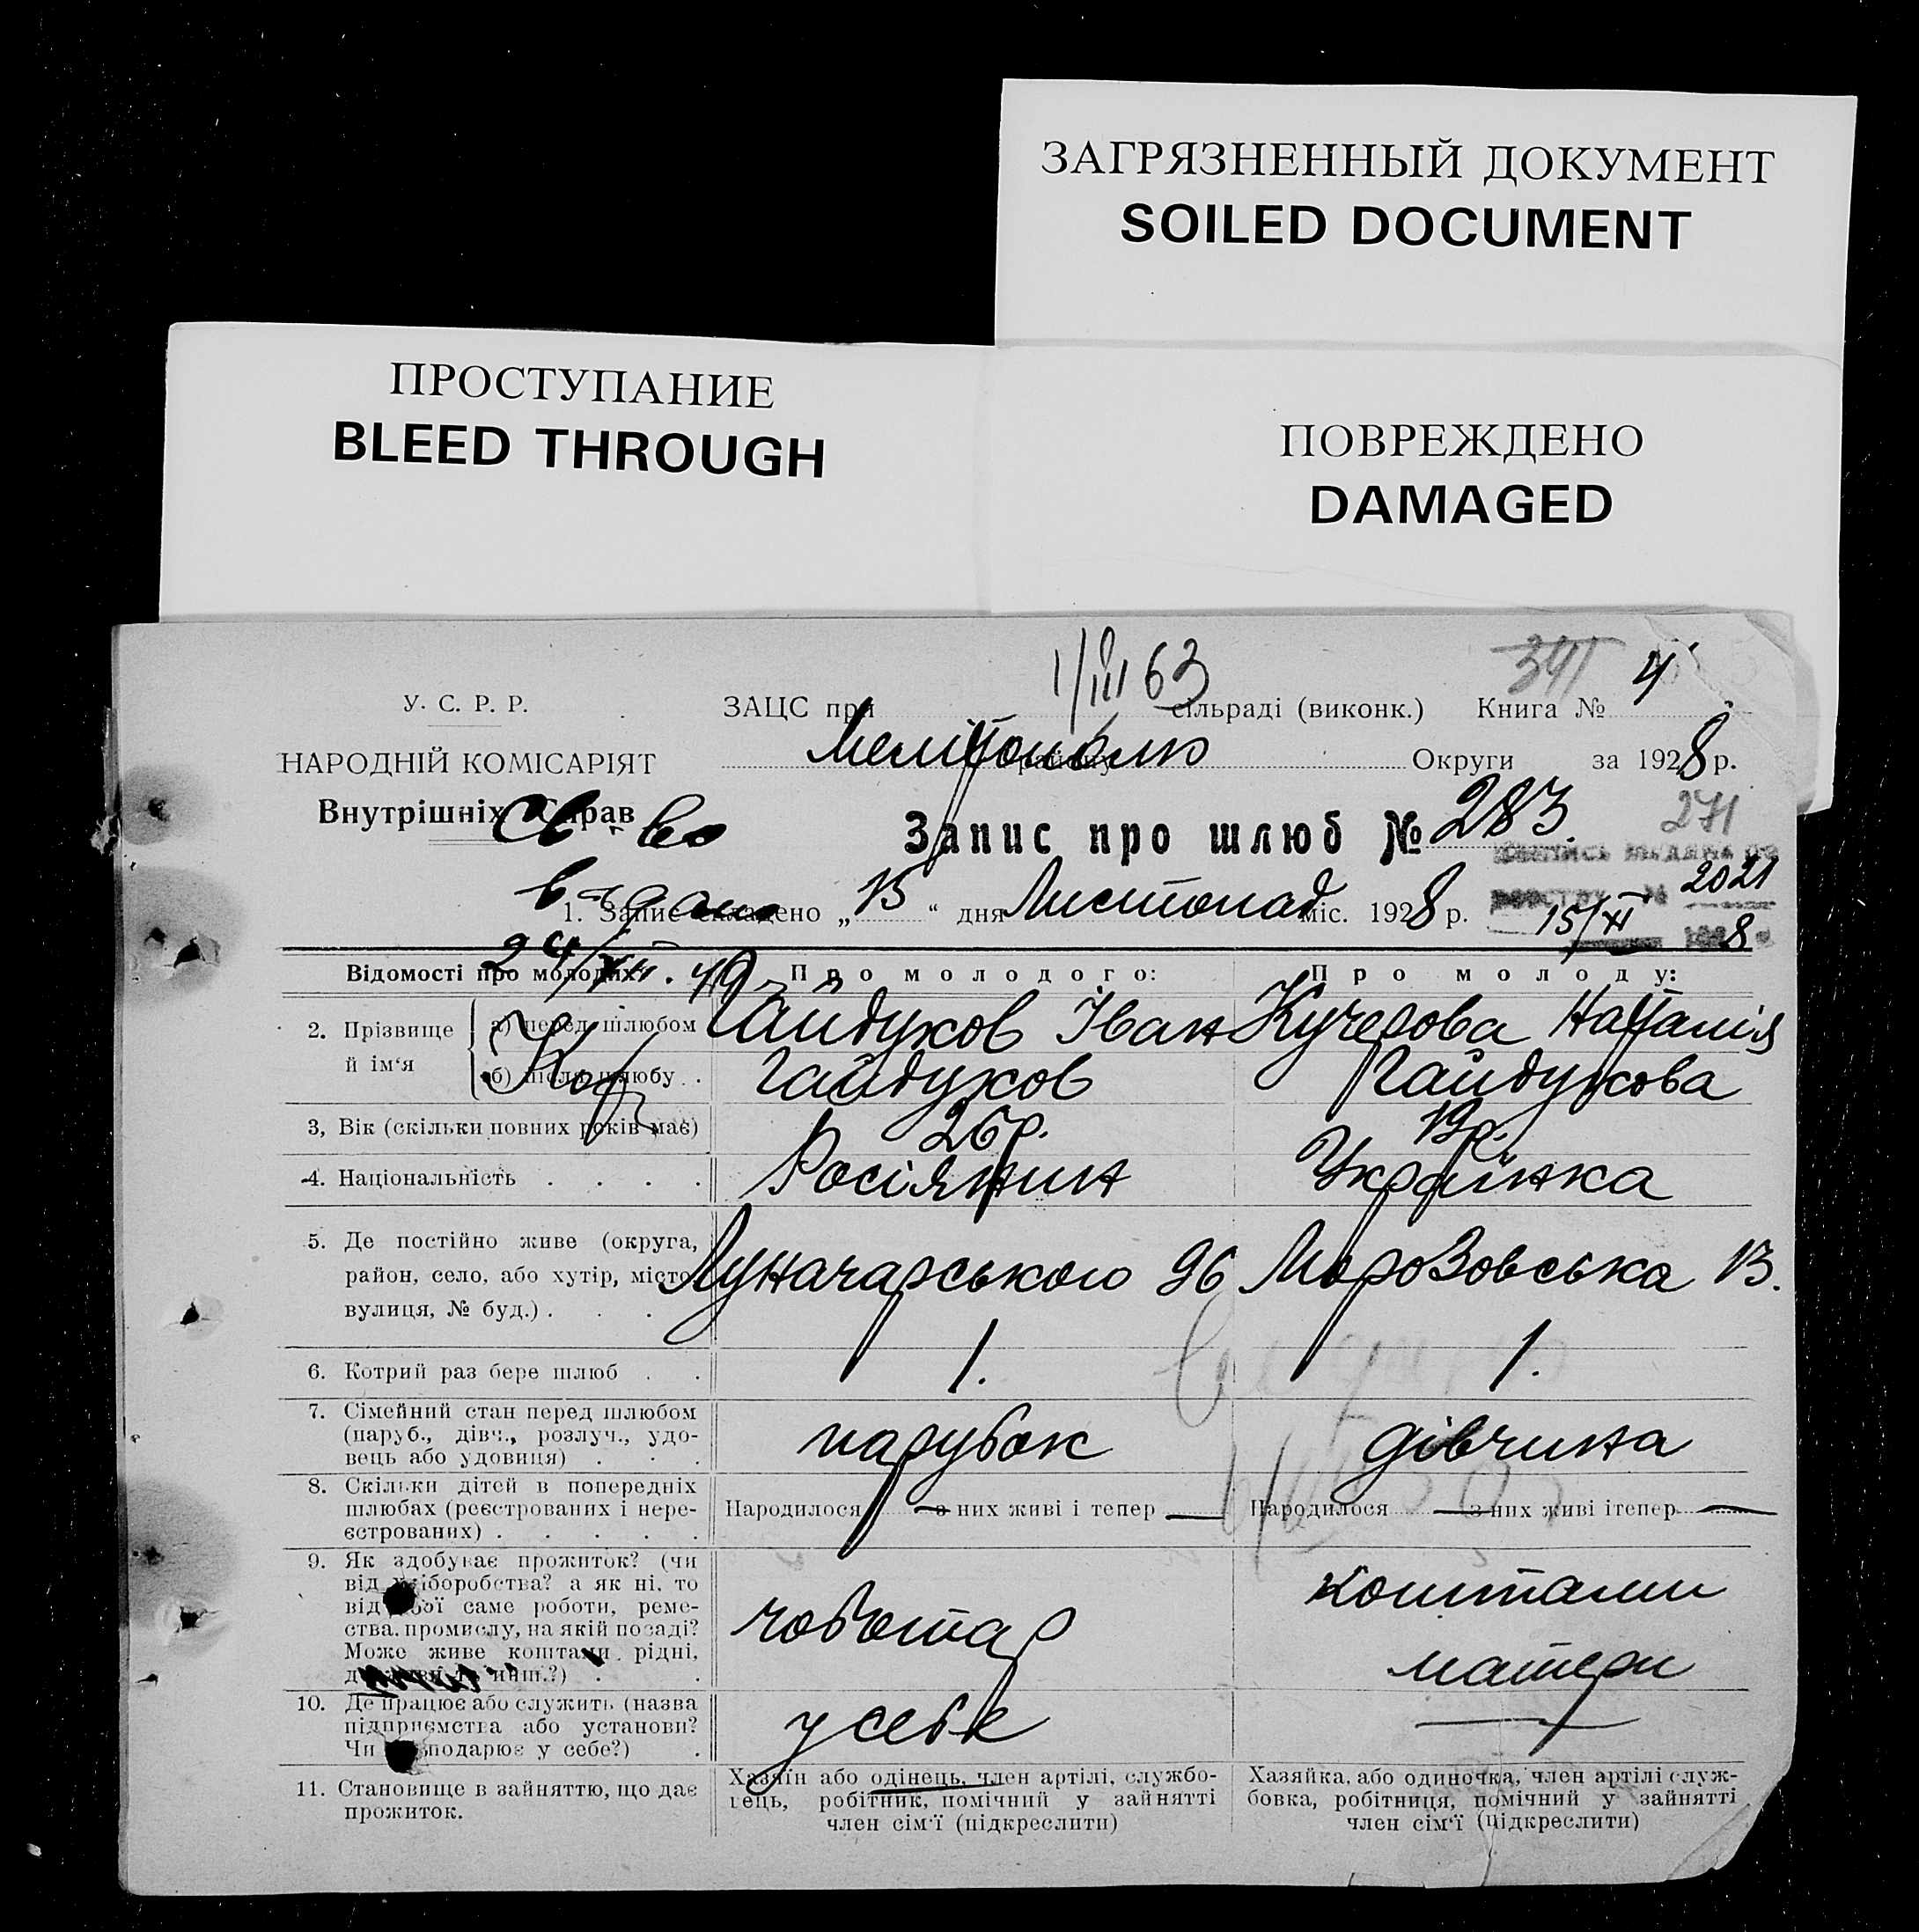 ЗАГРЯЗНЕННЫЙ ДОКУМЕНТ
SOILED DOCUMENT
ПРОСТУПАНИЕ
BLEED THROUGH
ПОВРЕЖДЕНО
DAMAGED
1/III 63
341 4
У. С. Р. Р.
ЗАЦС при сільраді (виконк.) Книга №
НАРОДНІЙ КОМІСАРІЯТ
Мелітополю району Округи за 1928 р.
Внутрішніх Справ
Св-во
Запис про шлюб № 283.
271
видано
1. Запис складено „15“ дня Листопад міс. 1928 р.
2021
15/XI 1928
24/XII.49
Відомості про молодих: Про молодого: Про молоду:
2. Прізвище й ім‘я
а) перед шлюбом Гайдуков Іван Кучерова Наталія
б) після шлюбу Гайдуков Гайдукова
3, Вік (скільки повних років має) 26 р. 19 р.
4. Національність Росіянин Українка
5. Де постійно живе (округа,
район, село, або хутір, місто
вулиця, № буд.) Луначарського 96 Морозовська 13.
6. Котрий раз бере шлюб 1. 1.
7. Сімейний стан перед шлюбом
(паруб., дівч., розлуч., удо-
вець або удовиця) парубок дівчина
8. Скільки дітей в попередніх
шлюбах (реєстрованих і нере-
єстрованих)
Народилося — з них живі і тепер — Народилося — з них живі ітепер —
9. Як здобуває прожиток? (чи
від хліборобства? а як ні, то
від якої саме роботи, реме-
ства, промислу, на якій посаді?
Може живе коштами рідні,
чоботар коштами
матери
10. Де працює або служить (назва
підприємства або установи?
Чи господарює у себе?) у себе —
11. Становище в зайняттю, що дає
прожиток.
Хазяїн або одінець, член артілі, службо-
вець, робітник, помічний у зайнятті
член сім‘ї (підкреслити)
Хазяйка, або одиночка, член артілі служ-
бовка, робітниця, помічний у зайнятті
член сім‘ї (підкреслити)